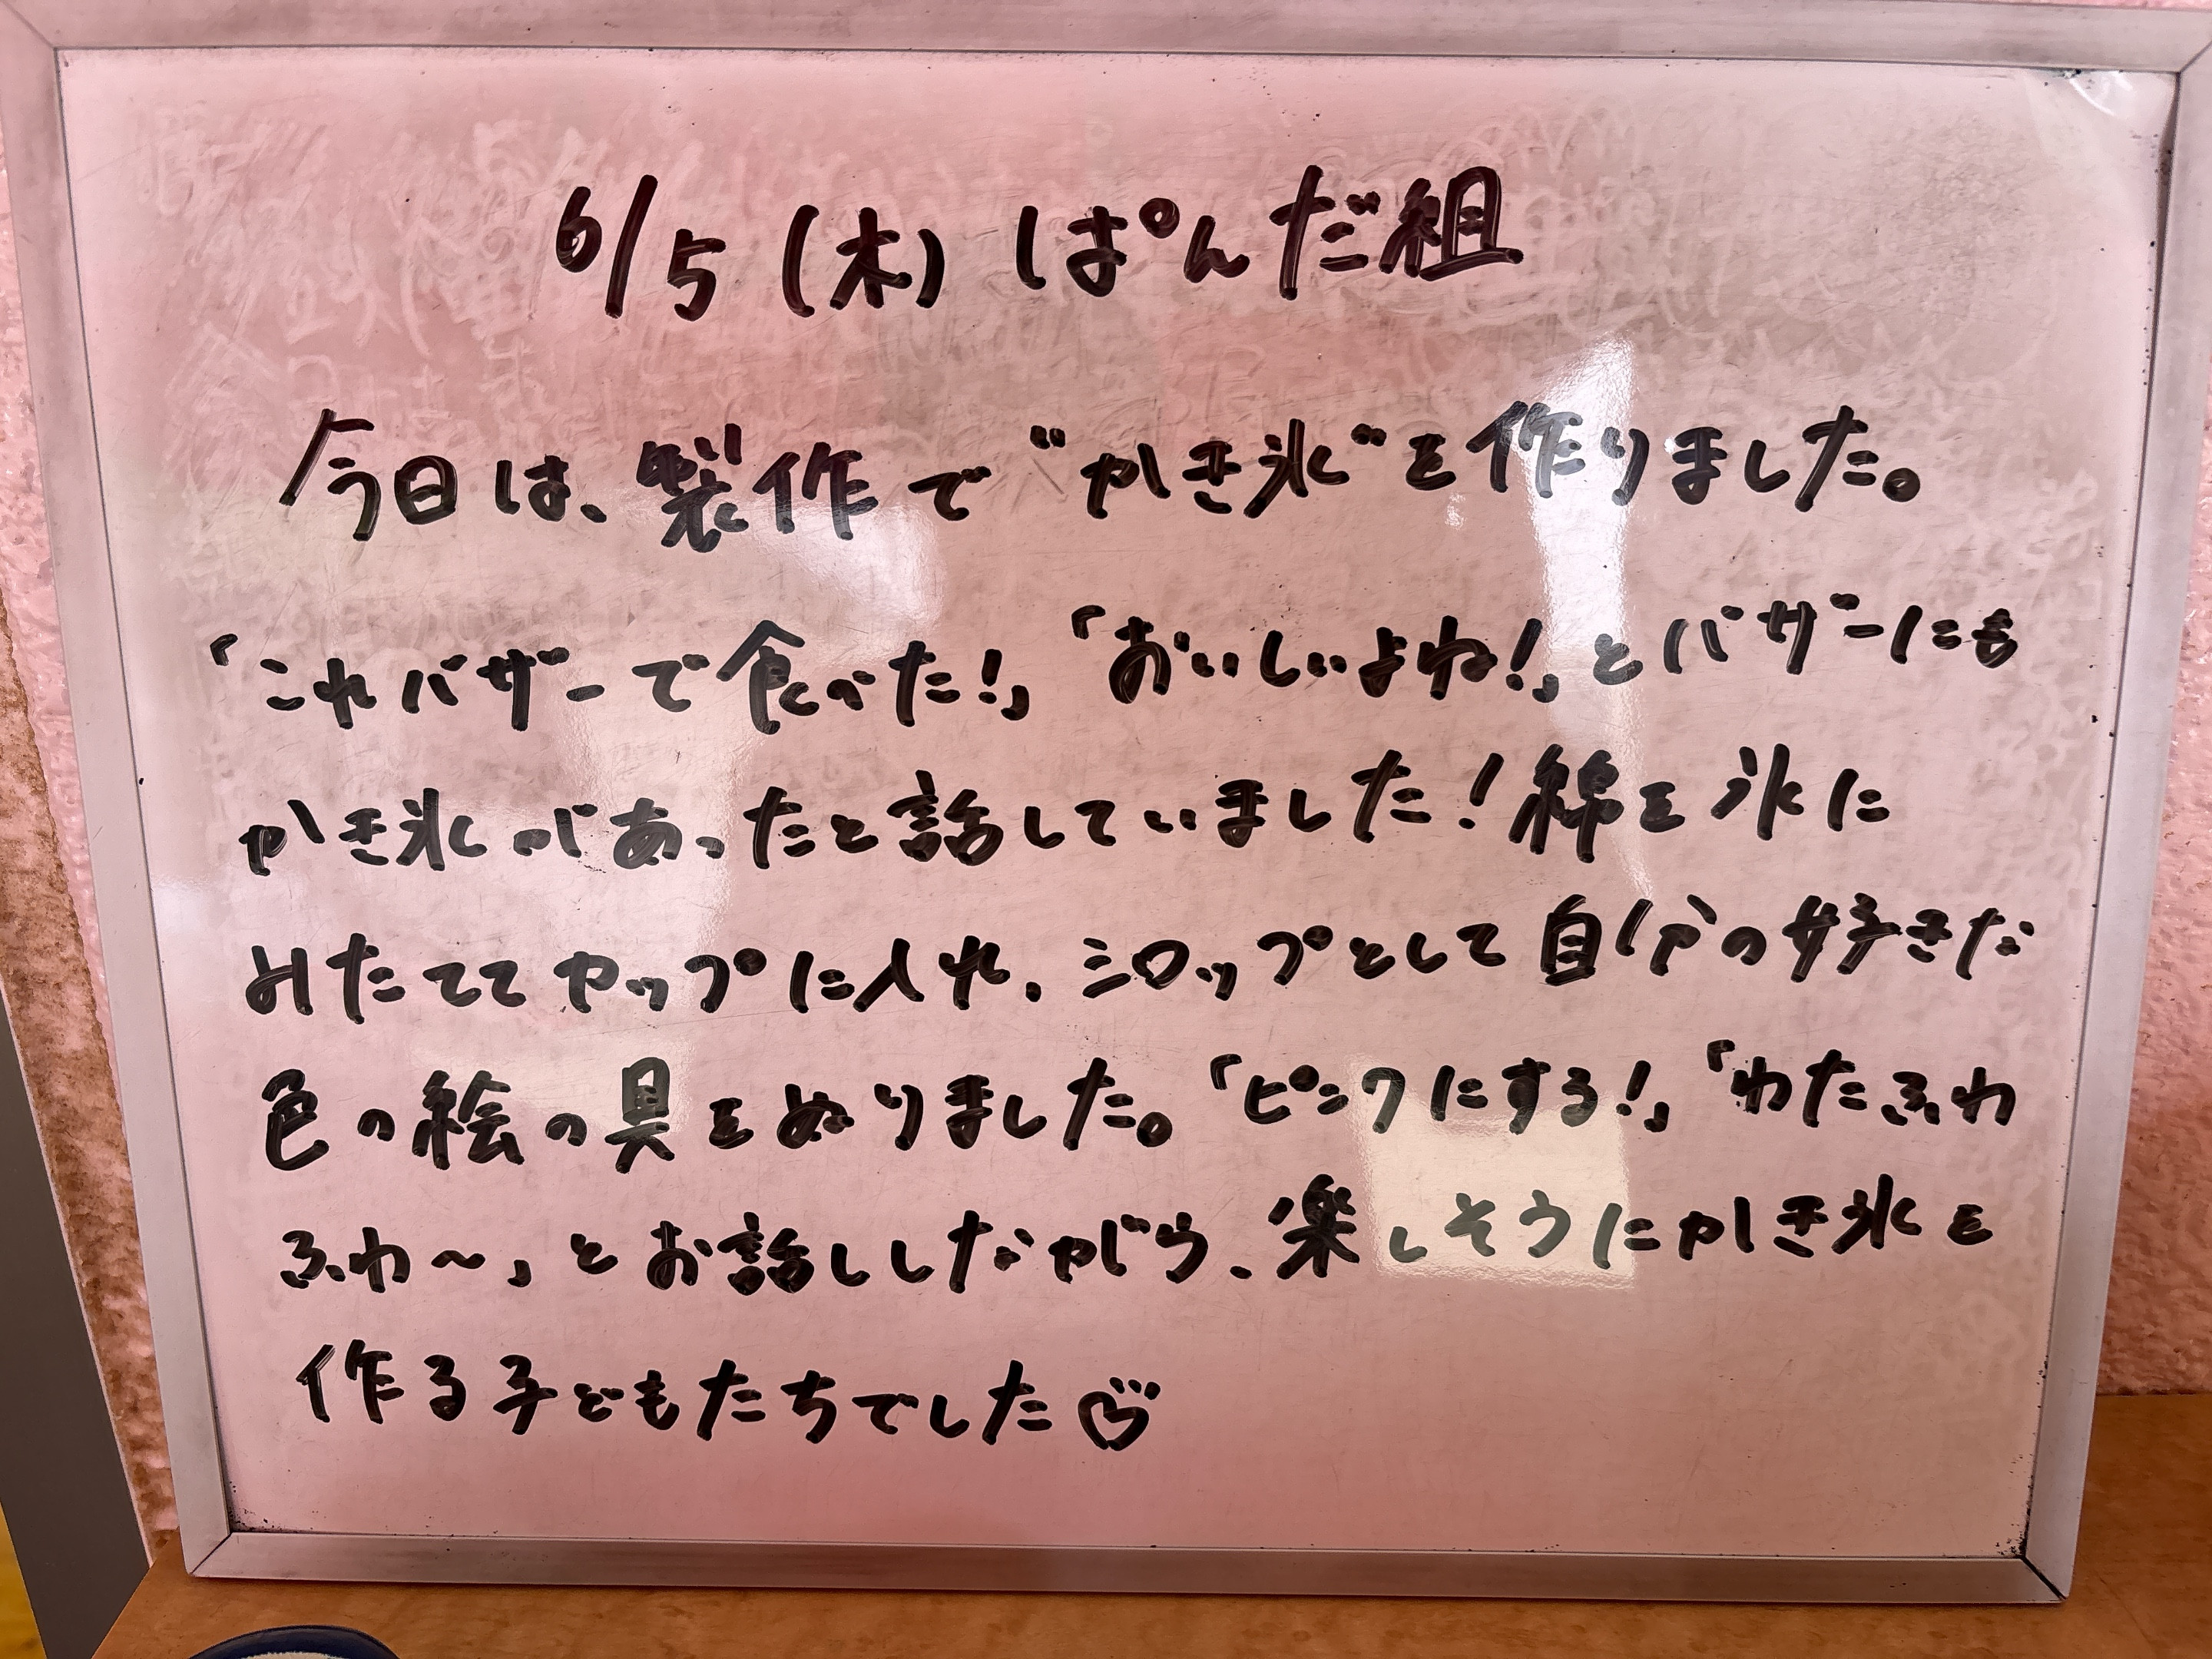 6/5 (木) ぱんだ組
今日は、製作で"かき氷"を作りました。
「これバザーで食べた!」「おいしいよね!」とバザーにも
かき氷があったと話していました!綿を氷に
みたててカップに入れ、シロップとして自分の好きだ
色の絵の具をぬりました。「ピンクにする!」「わたふわ
ふわ～」とお話ししながら、楽しそうにかき氷を
作る子どもたちでした♡